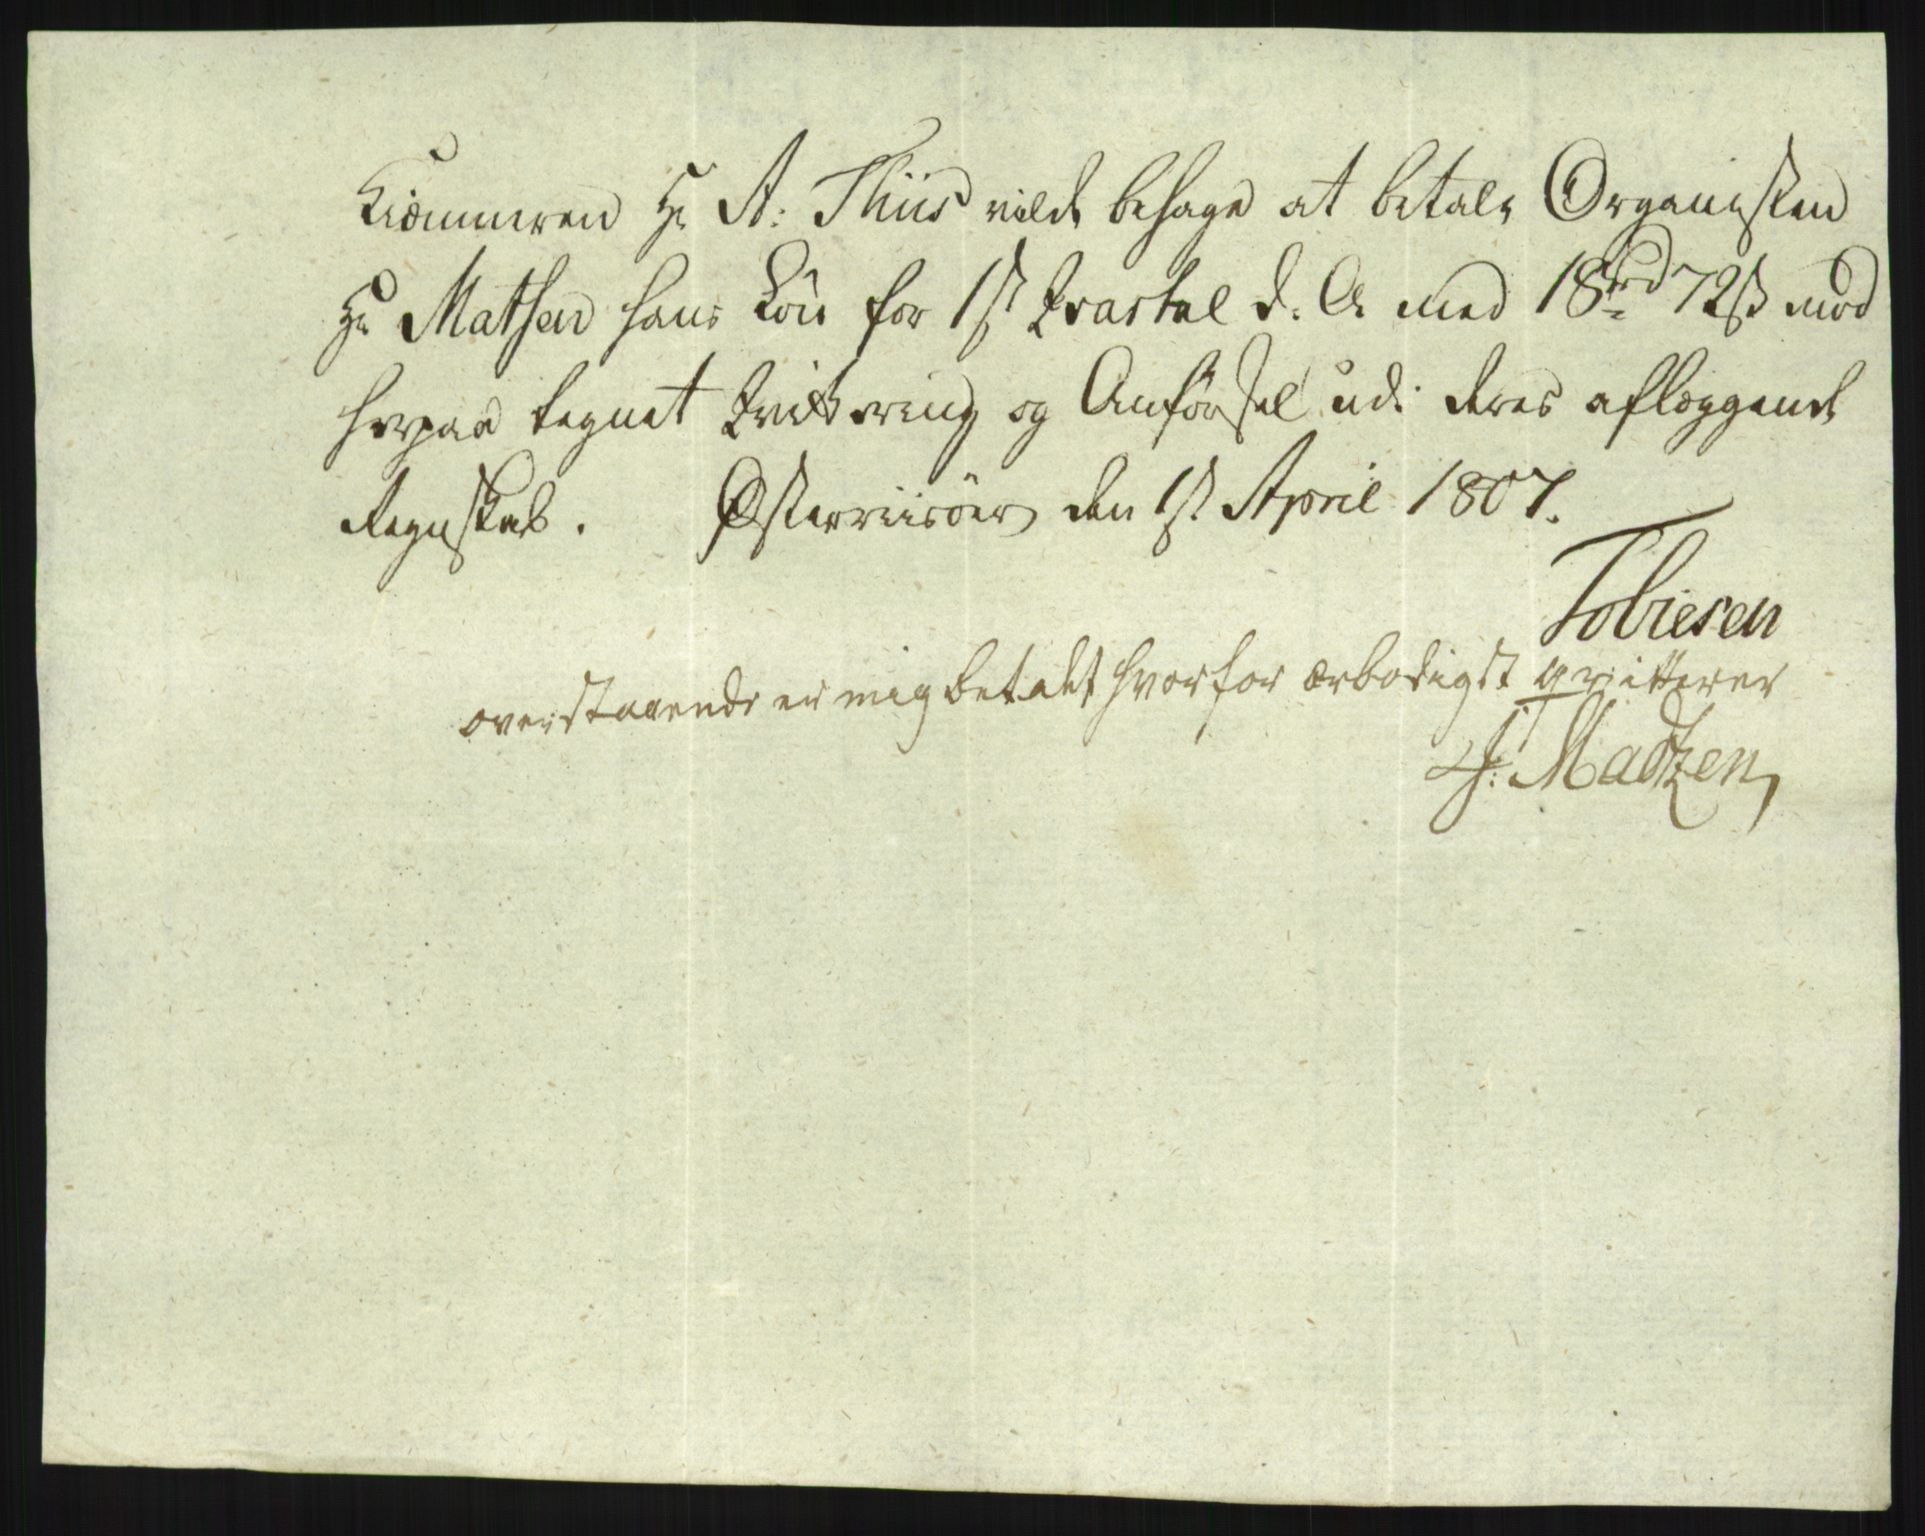 Kiæmneren Hr A: Thiis vilde behage at betale Organisten
Hr Mathsen hans Løn for 1ste Qvartal d: A med 18rd 72s mod
herpaa tegnet Qvittering og Anförsel udi deres aflæggende
Regnskab. Østerriisöer den 1ste April 1807.
Tobiesen
overstaaende er mig betalt hvorfor ærbødigst qvitterer
J: Madtzen